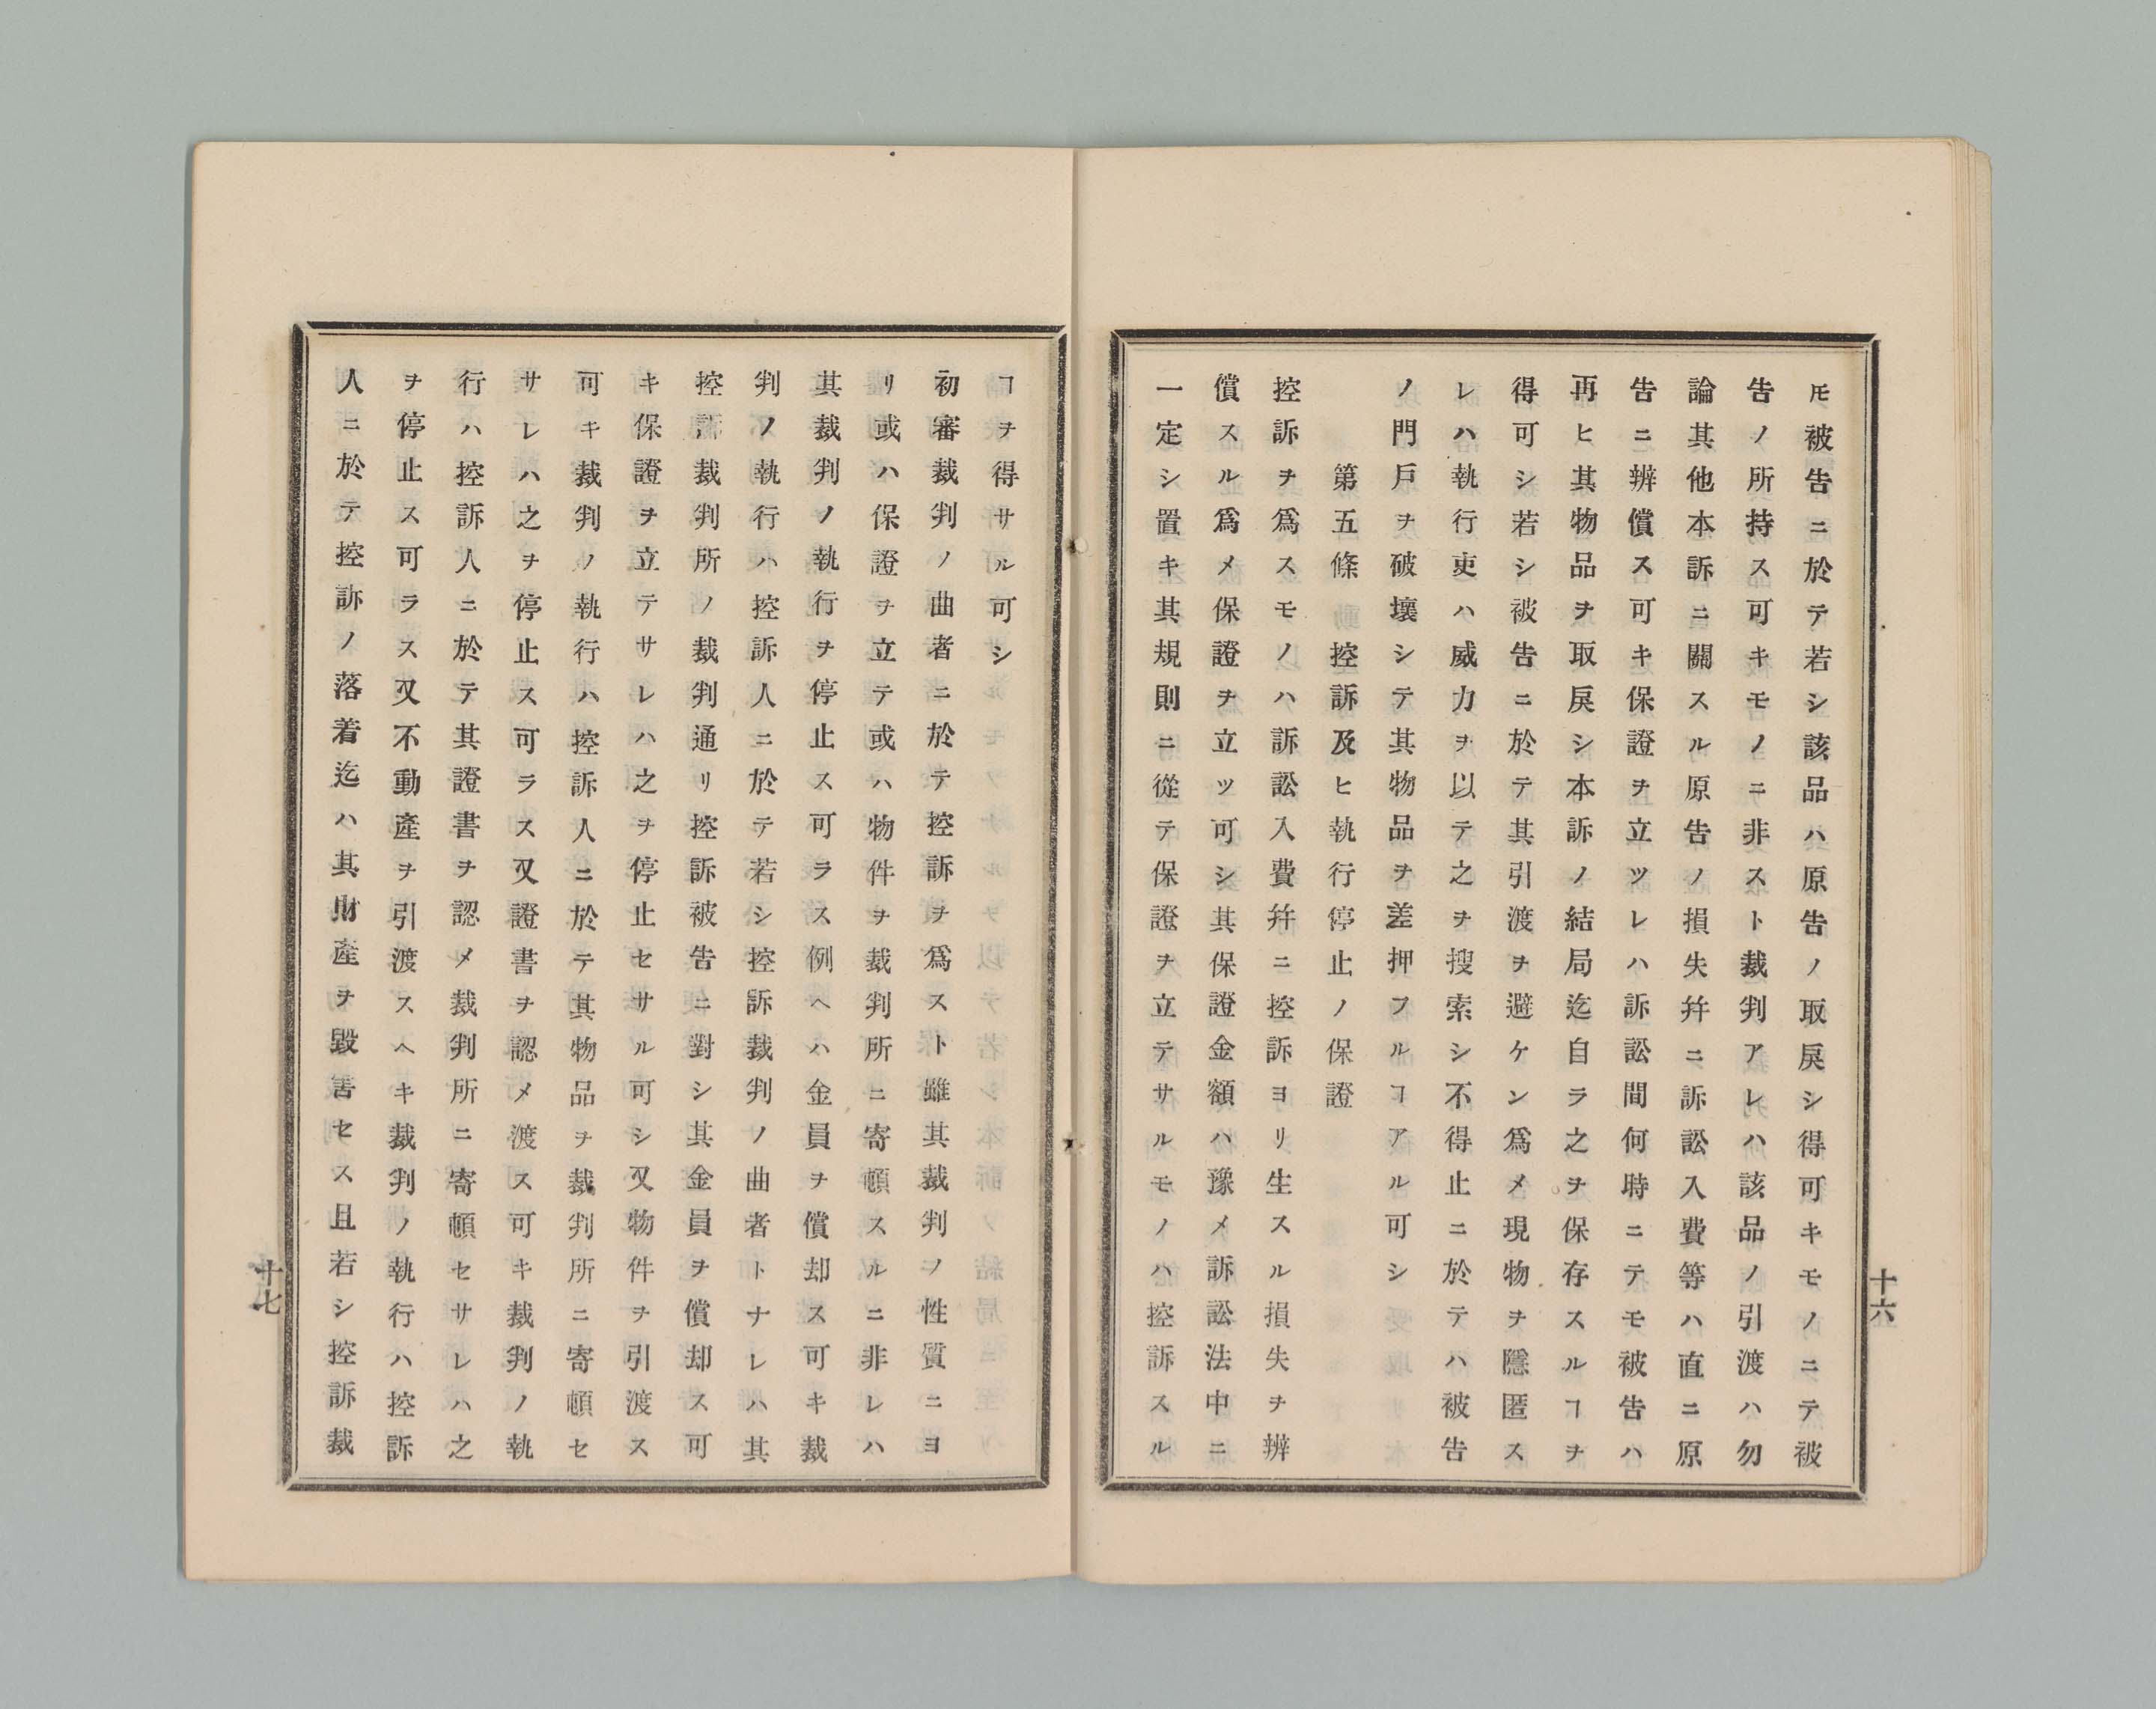 𪜈被告ニ於テ若シ該品ハ原告ノ取戾シ得可キモノニテ被
告ノ所持ス可キモノニ非スト裁判アレハ該品ノ引渡ハ勿
論其他本訴ニ關スル原告ノ損失幷ニ訴訟入費等ハ直ニ原
告ニ辨償ス可キ保證ヲ立ツレハ訴訟間何時ニテモ被告ハ
再ヒ其物品ヲ取戾シ本訴ノ結局迄自ラ之ヲ保存スルヿヲ
得可シ若シ被告ニ於テ其引渡ヲ避ケン爲メ現物ヲ隱匿ス
レハ執行吏ハ威力ヲ以テ之ヲ搜索シ不得止ニ於テハ被告
ノ門戶ヲ破壞シテ其物品ヲ差押フルヿアル可シ
第五條 控訴及ヒ執行停止ノ保證
控訴ヲ爲スモノハ訴訟入費幷ニ控訴ヨリ生スル損失ヲ辨
償スル爲メ保證ヲ立ツ可シ其保證金額ハ豫メ訴訟法中ニ
一定シ置キ其規則ニ從テ保證ヲ立テサルモノハ控訴スル
十六
ヿヲ得サル可シ
初審裁判ノ曲者ニ於テ控訴ヲ爲スト雖其裁判ノ性質ニヨ
リ或ハ保證ヲ立テ或ハ物件ヲ裁判所ニ寄頓スルニ非レハ
其裁判ノ執行ヲ停止ス可ラス例ヘハ金員ヲ償却ス可キ裁
判ノ執行ハ控訴人ニ於テ若シ控訴裁判ノ曲者トナレハ其
控訴裁判所ノ裁判通リ控訴被告ニ對シ其金員ヲ償却ス可
キ保證ヲ立テサレハ之ヲ停止セサル可シ又物件ヲ引渡ス
可キ裁判ノ執行ハ控訴人ニ於テ其物品ヲ裁判所ニ寄頓セ
サレハ之ヲ停止ス可ラス又證書ヲ認メ渡ス可キ裁判ノ執
行ハ控訴人ニ於テ其證書ヲ認メ裁判所ニ寄頓セサレハ之
ヲ停止ス可ラス又不動產ヲ引渡スヘキ裁判ノ執行ハ控訴
人ニ於テ控訴ノ落着迄ハ其財產ヲ毀害セス且若シ控訴裁
十七